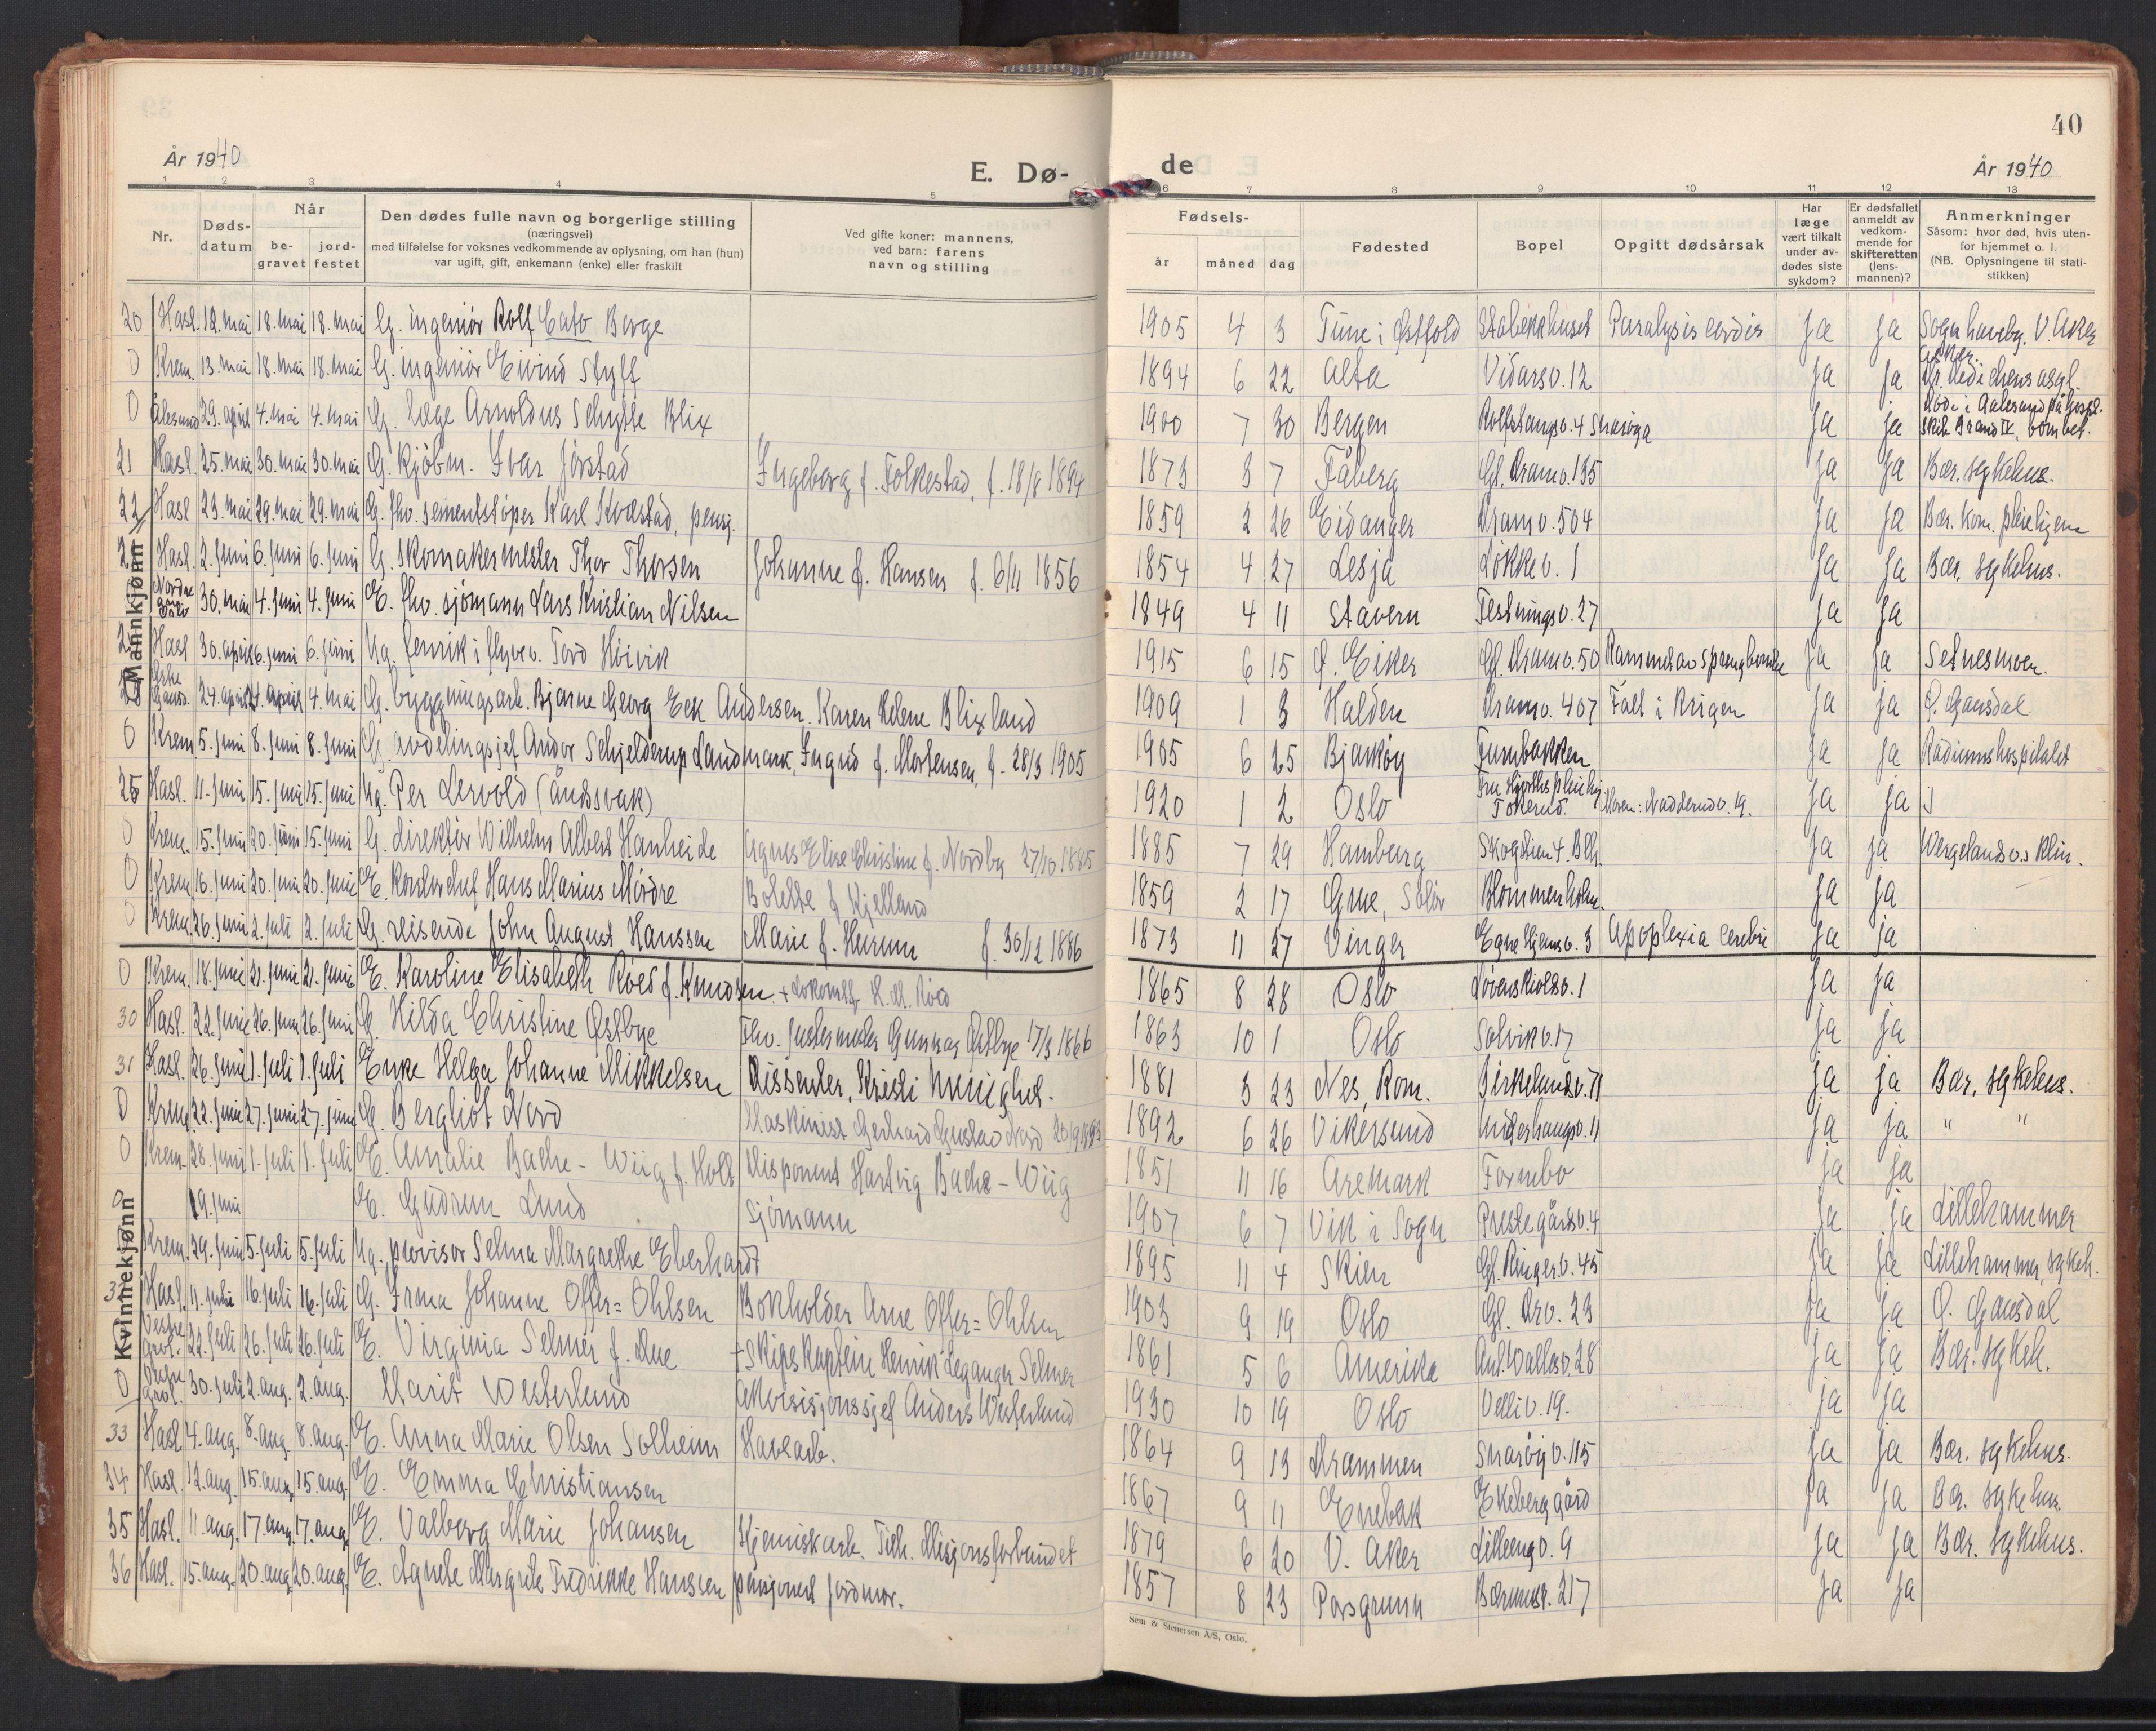 40
År 1940
E. Dø-
de
År 1940
1 2 3 4 5 6 7 8 9 10 11 12 13
Nr.
Døds-
datum
Når
be-
gravet
jord-
festet
Den dødes fulle navn og borgerlige stilling
(næringsvei)
med tilføielse for voksnes vedkommende av oplysning, om han (hun)
var ugift, gift, enkemann (enke) eller fraskilt
Ved gifte koner: mannens,
ved barn: farens
navn og stilling
Fødsels-
år måned dag
Fødested
Bopel
Opgitt dødsårsak
Har
læge
vært tilkalt
under av-
dødes siste
sykdom?
Er dødsfallet
anmeldt av
vedkom-
mende for
skifteretten
(lens-
mannen)?
Anmerkninger
Såsom: hvor død, hvis uten-
for hjemmet o. l.
(NB. Oplysningene til stati-
stikken)
Mannkjønn
20 Hasl. 12. mai 18. mai 18. mai G. ingeniør Rolf Cato Berge 1905 4 3 Tune i Østfold Stabekkhuset Paralysis cordis ja ja Sogn haveby. V. Aker
0 Krem. 13. mai 18. mai 18. mai G. ingeniør Eivind Styff 1894 6 22 Alta Vidarsv. 12 ja ja
0 Ålesund 29. april 4. mai 4. mai G. læge Arnoldus Schytte Blix 1900 7 30 Bergen Rolfstangv. 4 Snarøya ja ja
21 Hasl. 25. mai 30. mai 30. mai G. kjøbm. Ivar Jørstad Ingeborg f. Folkestad, f. 18/8 1894 1873 3 7 Fåberg Gl. Dramv. 135 ja ja Bær. sykehus.
22 Hasl 23. mai 29. mai 29. mai G. fhv. sementstøper Karl Kvæstad, pensj. 1859 2 26 Eidanger Dramv. 504 ja ja Bær. kom. pleiehjem
Hasl. 2. juni 6. juni 6. juni G. skomakermester Thor Thorsen Johanne f. Hansen f. 6/11 1856 1854 4 27 Lesja Løkkev. 1 ja ja Bær. sykehus.
30. mai 4. juni 4. juni E. fhv. sjømann Lars Kristian Nilsen 1849 4 11 Stavern Festningsv. 27 ja ja
Hasl 30. april 6. juni 6. juni Ug. fenrik i flyvev. Tord Höivik 1915 6 15 Ø. Eiker Gl. Dramv. 50 Rammet av sprengbombe ja ja Setnesmoen.
24. april 4. mai G. bygningsarb. Bjarne Georg Eek Andersen. Karen Helene Blixland 1909 1 3 Halden Dramv. 407 Falt i krigen ja ja Ø. Gausdal
0 Krem. 5. juni 8. juni 8. juni G. avdelingssjef Andor Schjelderup Landmark, Ingrid f. Mortensen, f. 28/3 1905 1905 6 25 Bjarkøy Furubakken ja ja Radiumhospitalet
25 Hasl. 11. juni 15. juni 15. juni Ug. Per Lervold (åndssvak) 1920 1 2 Oslo ja ja
0 Krem. 15. juni 20. juni 15. juni G. direktør Wilhelm Albert Hanheide Agnes Elise Christine f. Nordby 27/10 1885 1885 7 29 Hamburg ja ja Wergelandsv.s klin.
0 Krem. 16. juni 20. juni 20. juni E. kontorchef Hans Marius Mørdre Bolette f. Kjelland 1859 2 17 Grue, Solør Blommenholm. ja ja
0 Krem. 26. juni 2. juli 2. juli G. reisende John August Hanssen Marie f. Hurum f. 30/12 1886 1873 11 27 Vinger Egne Hjemsv. 3 Apoplexia cerebri ja ja
Kvinnekjønn
0 Krem. 18. juni 21. juni 21. juni E. Karoline Elisabeth Röed f. Knudsen 1865 8 28 Oslo Løvenskioldsv. 1 ja ja
30 Hasl. 22. juni 26. juni 26. juni G. Hilda Christine Østbye Fhv. justermester Gunnar Østbye 17/3 1866 1863 10 1 Oslo Solvikv. 17 ja ja
31 Hasl. 26. juni 1. juli 1. juli Enke Helga Johanne Mikkelsen Dissenter, Kristi menighet. 1881 3 23 Nes, Rom. Birkelundsv. 71 ja ja Bær. sykehus.
0 Krem. 22. juni 27. juni 27. juni G. Bergliot Nord Maskinist Gerhard Gustav Nord 20/9 1893 1892 6 26 Vikersund Underhaugsv. 11 ja ja " "
0 Krem. 28. juni 1. juli 1. juli E. Amalie Bache-Wiig f. Holt Disponent Hartvig Bache-Wiig 1851 11 16 Aremark Fornebo ja ja
0 19. juni E. Gudrun Lund Sjømann 1907 6 7 Vik i Sogn Prestegårdsv. 4 ja ja Lillehammer
Krem. 29. juni 5. juli 5. juli Ug. provisor Selma Margrethe Eberhardt 1895 11 4 Skien Gl. Ringer.v. 45 ja ja Lillehammer, sykeh.
32 Hasl. 11. juli 16. juli 16. juli G. Irma Johanne Offer=Ohlsen Bokholder Arne Offer=Ohlsen 1903 9 19 Oslo Gl. Dr.v. 23 ja ja Ø. Gausdal
Vestre grvl. 22. juli 26. juli 26. juli E. Virginia Selmer f. Due + Skipskaptein Henrik Leganger Selmer 1861 5 6 Amerika Ant. Wallesv. 28 ja ja Bær. sykeh.
0 30. juli 2. aug. 2. aug. Marit Westerlund Akvisisjonssjef Anders Westerlund 1930 10 19 Oslo Velliv. 19. ja ja
33 Hasl. 4. aug. 8. aug. 8. aug. E. Anna Marie Olsen Solheim Havearb. 1864 9 13 Drammen Snarøyv. 115 ja ja Bær. sykehus.
34 Hasl. 12. aug. 15. aug. 15. aug. E. Emma Christiansen 1867 9 11 Enebak Ekeberg gård ja ja Bær. sykehus.
35 Hasl. 11. aug. 17. aug. 17. aug. E. Valborg Marie Johansen Kjemiskarb. Tilh. Misjonsforbundet 1879 6 20 V. Aker Lilleengv. 9 ja ja Bær. sykehus.
36 Hasl. 15. aug. 20. aug. 20. aug. E. Agnete Margrete Fredrikke Hanssen pensjonert jordmor. 1857 8 23 Porsgrunn Bærumsv. 217 ja ja
Sem & Stenersen A/S, Oslo.